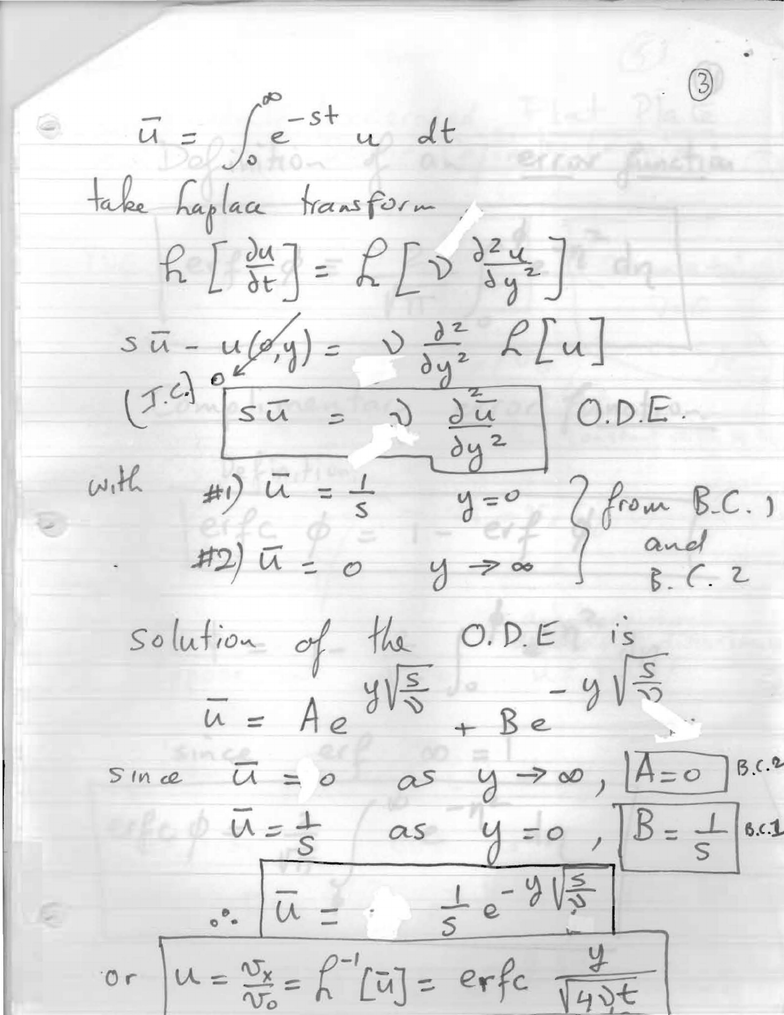 3
ū = ∫₀^∞ e^(-st) u dt
take Laplace transform
L [∂u/∂t] = L [ν ∂²u/∂y²]
s ū - u(0,y) = ν ∂²/∂y² L [u]
(I.C.) 0
s ū = ν ∂²ū/∂y² O.D.E.
with #1) ū = 1/s y=0 } from B.C. 1
and
#2) ū = 0 y → ∞ B.C. 2
solution of the O.D.E is
ū = A e^(y√(s/ν)) + B e^(-y√(s/ν))
since ū = 0 as y → ∞, A=0 B.C.2
ū = 1/s as y = 0, B = 1/s B.C.1
∴ ū = 1/s e^(-y√(s/ν))
or u = v_x/v_0 = L⁻¹[ū] = erfc y/√(4νt)